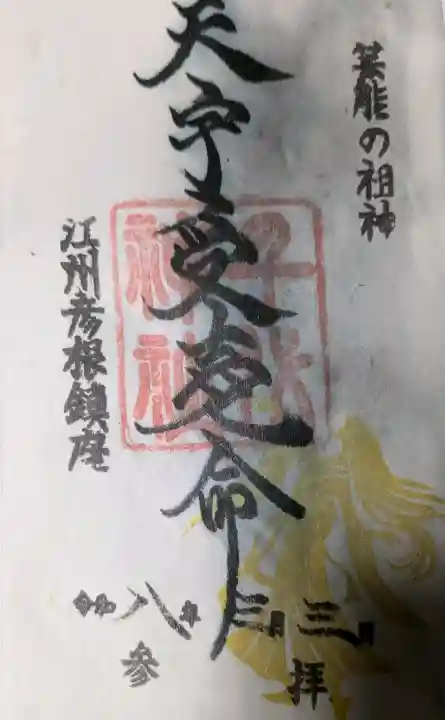 芸能の祖神
天宇受売命
千代
神社
江州彦根鎮座
令和八年三月三日
参拝